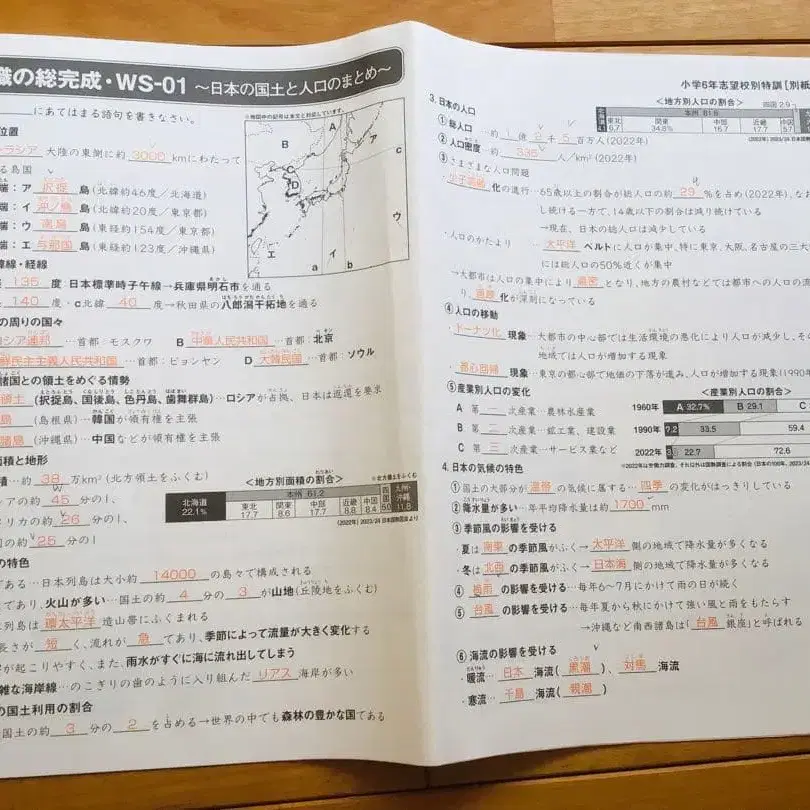 職の総完成・WS-01 〜日本の国土と人口のまとめ〜
にあてはまる語句を書きなさい。
※地図中の記号は本文と対応しています。
B
A
C
D
c
ウ
イ
エ
a
b
位置
ラシア 大陸の東側に約 3000 kmにわたって
る島国
端：ア 択捉 島(北緯約46度/北海道)
端：イ 島(北緯約20度/東京都)
端：ウ 南鳥 島(東経約154度/東京都)
端：エ 与那国 島(東経約123度/沖縄県)
緯線・経線
135 度：日本標準時子午線→兵庫県明石市を通る
140 度・c北緯 40 度→秋田県の八郎潟干拓地を通る
の周りの国々
シア連邦 …首都：モスクワ B 中華人民共和国 …首都：北京
鮮民主主義人民共和国 …首都：ピョンヤン D 大韓民国 …首都：ソウル
諸国との領土をめぐる情勢
領土 (択捉島、国後島、色丹島、歯舞群島)…ロシアが占拠、日本は返還を要求
島 (島根県)…韓国が領有権を主張
諸島 (沖縄県)…中国などが領有権を主張
面積と地形
積…約 38 万km²(北方領土をふくむ)
シアの約 45 分の1、
メリカの約 26 分の1、
国の約 25 分の1
<地方別面積の割合>
※北方領土をふくむ
北海道 22.1%
本州 61.2
東北 17.7
関東 8.6
中部 17.7
近畿 8.8
中国 8.4
四国 5.0
九州・沖縄 11.8
(2022年)(2023/24 日本国勢図会より)
の特色
である…日本列島は大小約 14000 の島々で構成される
であり、火山が多い…国土の約 4 分の 3 が山地(丘陵地をふくむ)
列島は 環太平洋 造山帯にふくまれる
長さが 短 く、流れが 急 であり、季節によって流量が大きく変化する
が起こりやすく、また、雨水がすぐに海に流れ出してしまう
雑な海岸線…のこぎりの歯のように入り組んだ リアス 海岸が多い
の国土利用の割合
国土の約 3 分の 2 を占める→世界の中でも森林の豊かな国である
小学6年志望校別特訓［別紙
3. 日本の人口
<地方別人口の割合>
四国 2.9
本州 81.6
東北 6.7
関東 34.8%
中部 16.7
近畿 17.7
中国 5.7
①総人口 …約 1 億 2 千 5 百万人(2022年)
②人口密度…約 335 人/km²(2022年)
③さまざまな人口問題
・少子高齢 化の進行…65歳以上の割合が総人口の約 29 %を占め(2022年)、なお
し続ける一方で、14歳以下の割合は減り続けている
→現在、日本の総人口は減少している
・人口のかたより … 太平洋 ベルトに人口が集中、特に東京、大阪、名古屋の三大
には総人口の50%近くが集中
→大都市は人口の集中により 過密 となり、地方の農村などでは都市への人口の流
り、 過疎 化が深刻になっている
④人口の移動
・ドーナツ化 現象…大都市の中心部では生活環境の悪化により人口が減少し、そ
地域では人口が増加する現象
・都心回帰 現象…東京の都心部で地価の下落が進み、人口が増加する現象(1990年
⑤産業別人口の変化
A 第 一 次産業…農林水産業
B 第 二 次産業…鉱工業、建設業
C 第 三 次産業…サービス業など
<産業別人口の割合>
1960年 A 32.7% B 29.1 C
1990年 7.2 33.5 59.4
2022年 3 22.7 72.6
4. 日本の気候の特色
①国土の大部分が 温帯 の気候に属する… 四季 の変化がはっきりしている
②降水量が多い…年平均降水量は約 1700 mm
③季節風の影響を受ける
・夏は 南東 の季節風がふく→ 太平洋 側の地域で降水量が多くなる
・冬は 北西 の季節風がふく→ 日本海 側の地域で降水量が多くなる
④ 梅雨 の影響を受ける…毎年6〜7月にかけて雨の日が続く
⑤ 台風 の影響を受ける…毎年夏から秋にかけて強い風と雨をもたらす
→沖縄など南西諸島は「台風 銀座」と呼ばれる
⑥海流の影響を受ける
・暖流… 日本 海流( 黒潮 )、 対馬 海流
・寒流… 千島 海流( 親潮 )